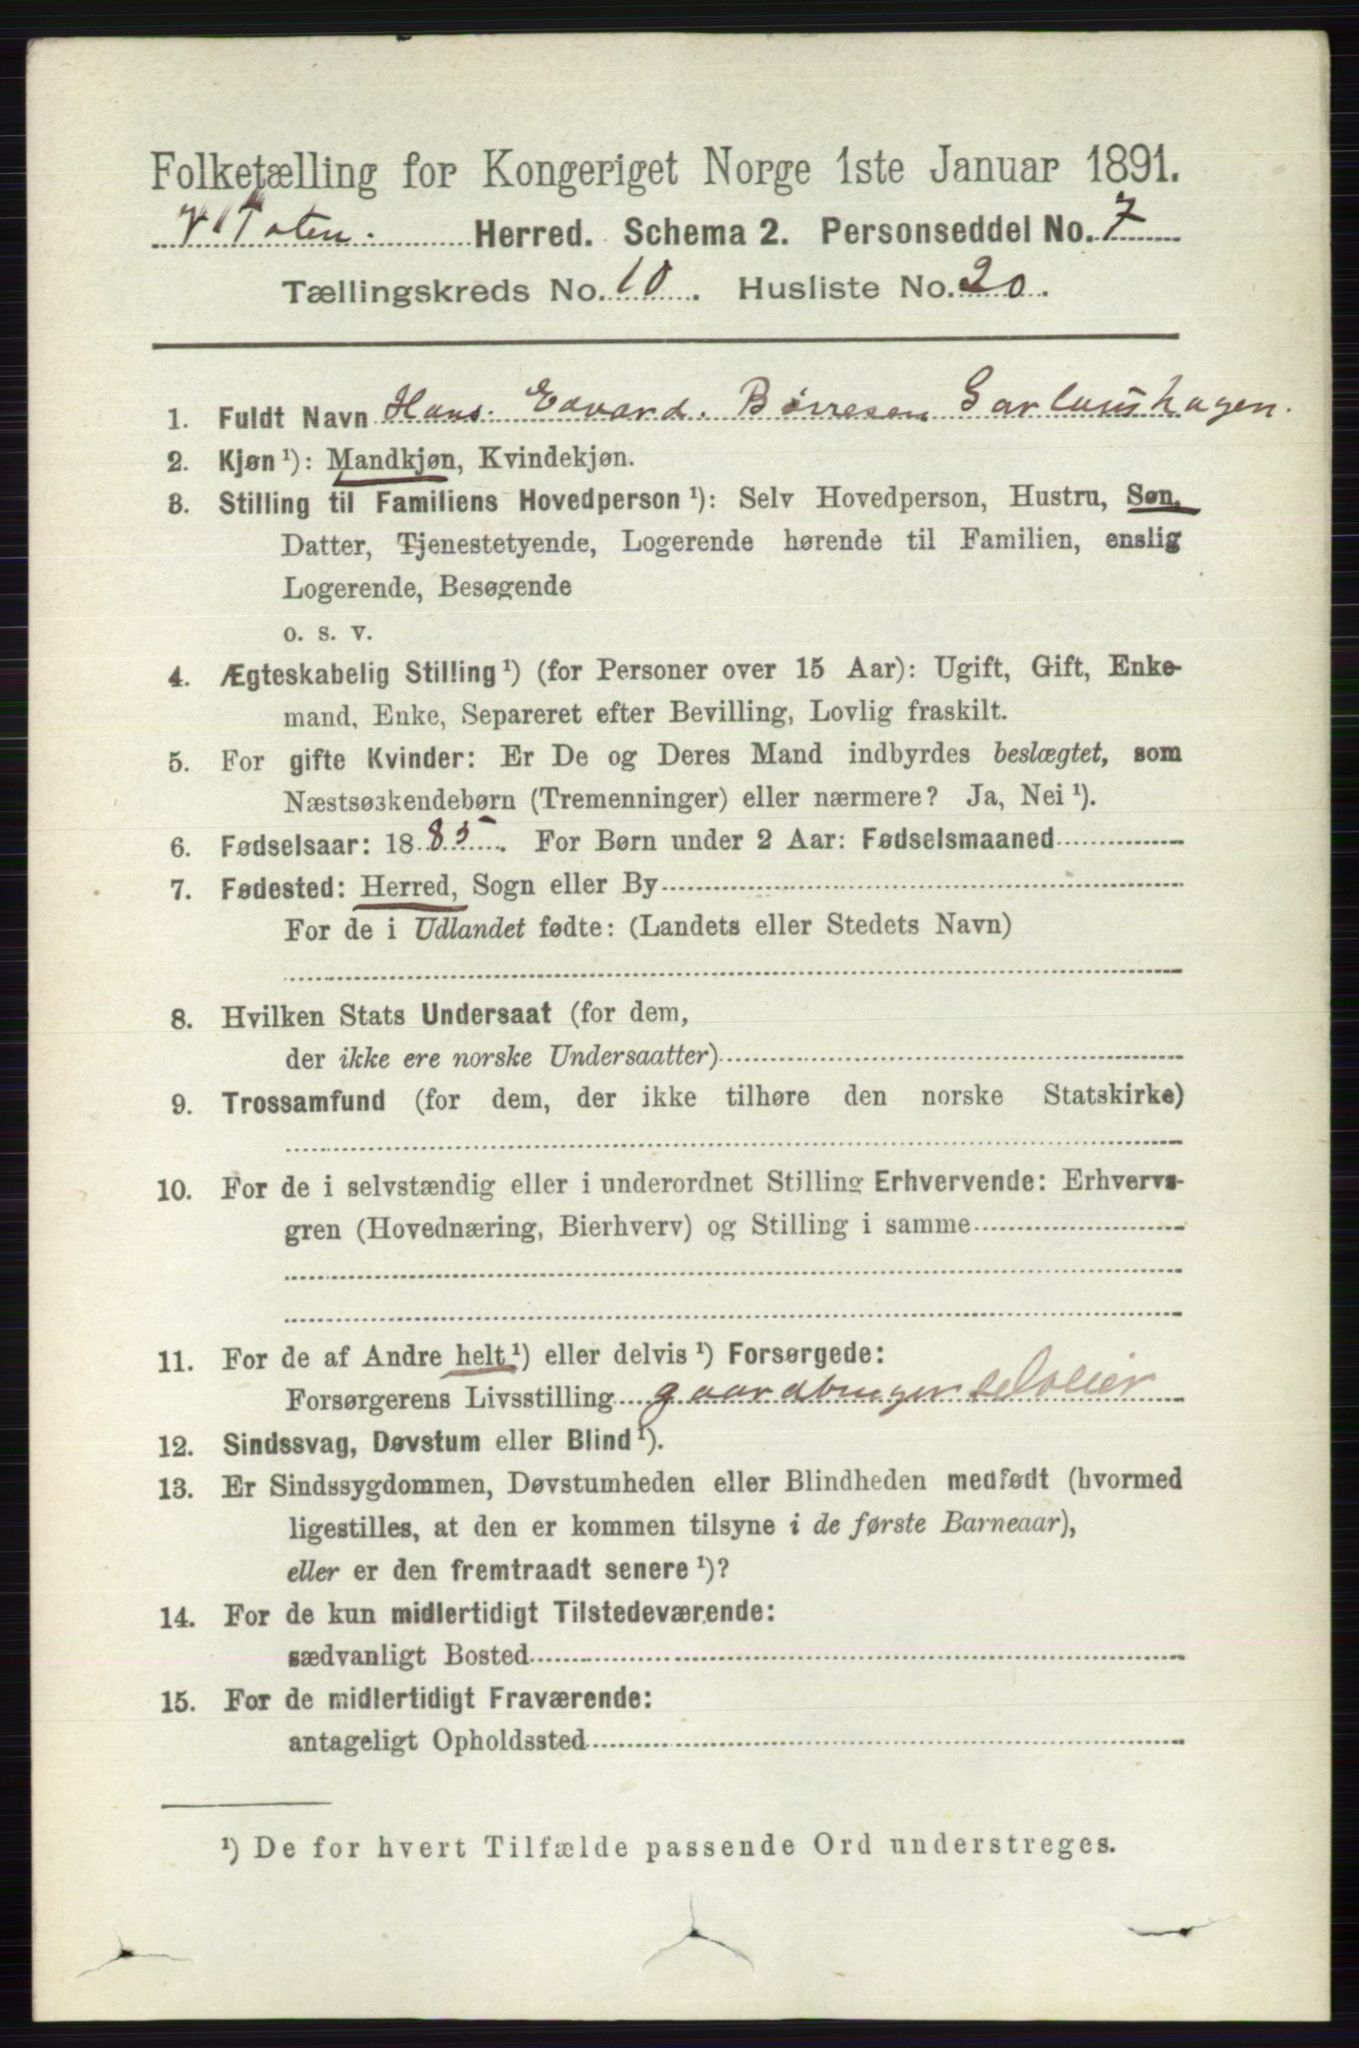 Folketælling for Kongeriget Norge 1ste Januar 1891.
V Toten. Herred. Schema 2. Personseddel No. 7
Tællingskreds No. 10. Husliste No. 20.
1. Fuldt Navn Hans Edvard Børresen
2. Kjøn ¹): Mandkjøn, Kvindekjøn.
3. Stilling til Familiens Hovedperson ¹): Selv Hovedperson, Hustru, Søn,
Datter, Tjenestetyende, Logerende hørende til Familien, enslig
Logerende, Besøgende
o. s. v.
4. Ægteskabelig Stilling ¹) (for Personer over 15 Aar): Ugift, Gift, Enke-
mand, Enke, Separeret efter Bevilling, Lovlig fraskilt.
5. For gifte Kvinder: Er De og Deres Mand indbyrdes beslægtet, som
Næstsøskendebørn (Tremenninger) eller nærmere? Ja, Nei ¹).
6. Fødselsaar: 1885. For Børn under 2 Aar: Fødselsmaaned
7. Fødested: Herred, Sogn eller By
For de i Udlandet fødte: (Landets eller Stedets Navn)
8. Hvilken Stats Undersaat (for dem,
der ikke ere norske Undersaatter)
9. Trossamfund (for dem, der ikke tilhøre den norske Statskirke)
10. For de i selvstændig eller i underordnet Stilling Erhvervende: Erhvervs-
gren (Hovednæring, Bierhverv) og Stilling i samme
11. For de af Andre helt ¹) eller delvis ¹) Forsørgede:
Forsørgerens Livsstilling gaardbruger selveier
12. Sindssvag, Døvstum eller Blind ¹).
13. Er Sindssygdommen, Døvstumheden eller Blindheden medfødt (hvormed
ligestilles, at den er kommen tilsyne i de første Barneaar),
eller er den fremtraadt senere ¹)?
14. For de kun midlertidigt Tilstedeværende:
sædvanligt Bosted
15. For de midlertidigt Fraværende:
antageligt Opholdssted
¹) De for hvert Tilfælde passende Ord understreges.